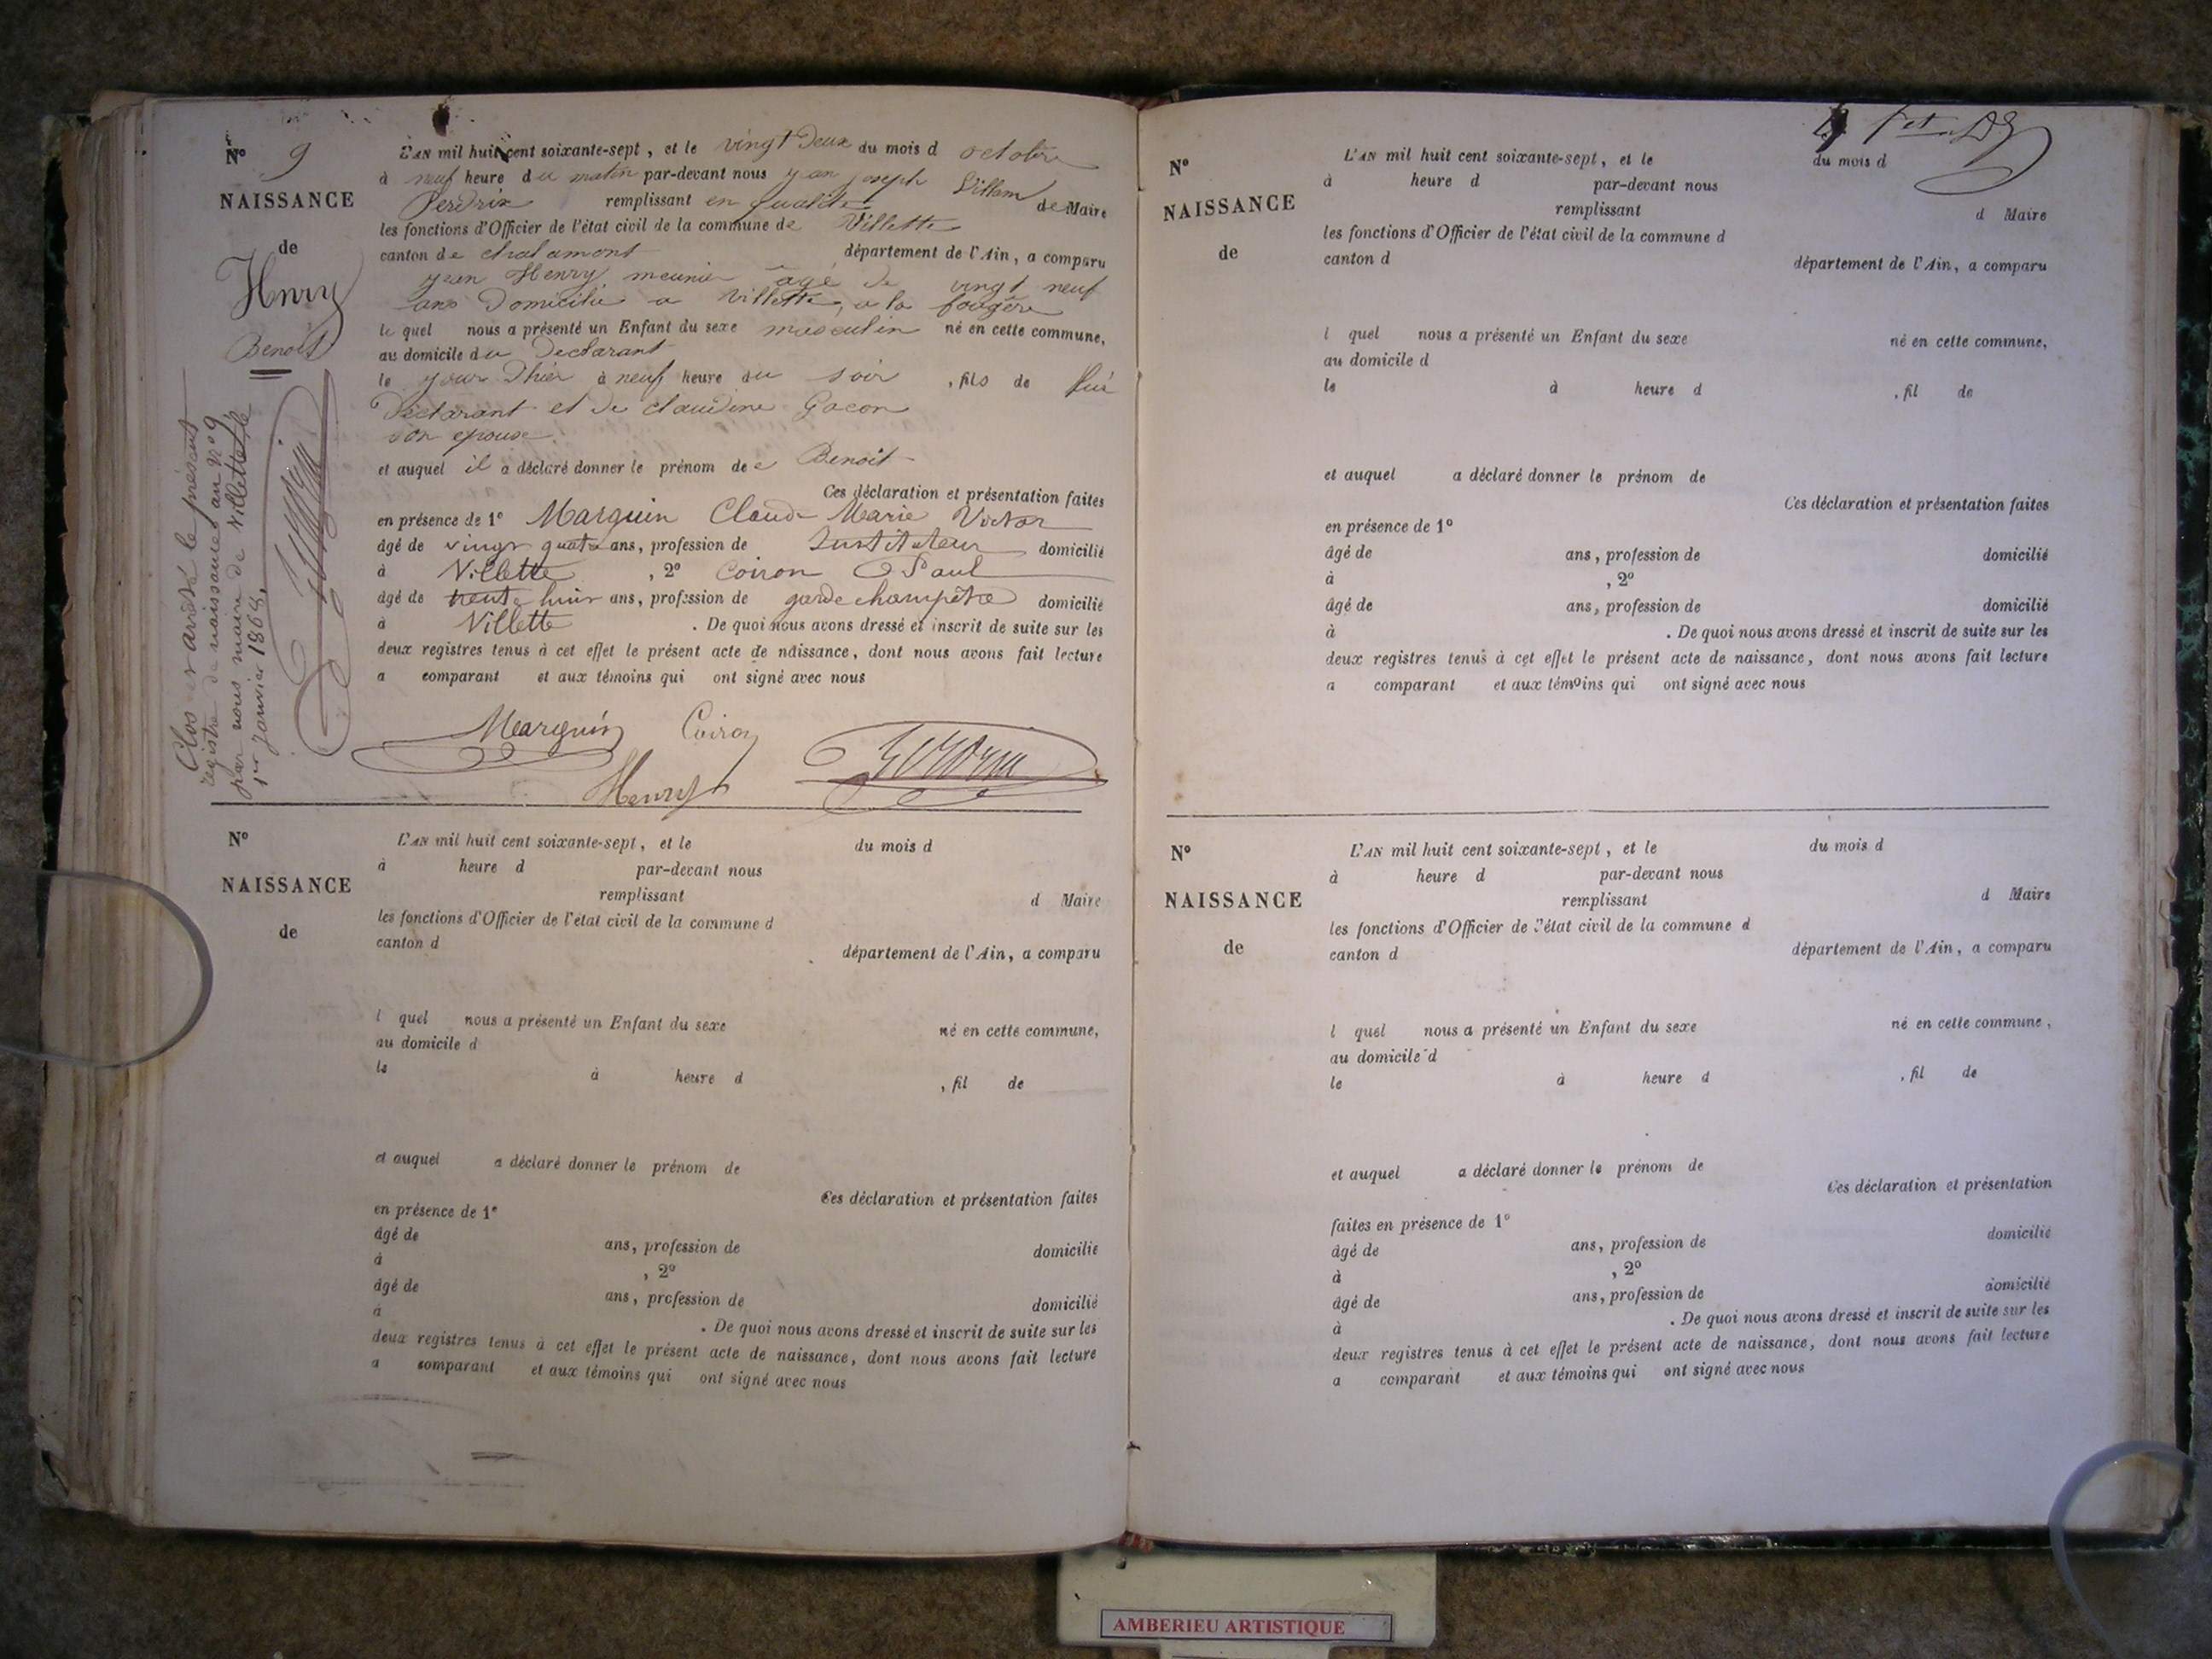 N° 9
NAISSANCE
de
Henry
Benoît
L'AN mil huit cent soixante-sept, et le vingt Deux du mois d octobre
à neuf heure du matin par-devant nous jean joseph
Perdrix remplissant en qualité de Maire
les fonctions d'Officier de l'état civil de la commune de Villette
canton de chalamont département de l'Ain, a comparu
jean Henry meunier âgé de vingt neuf
ans Domicilié a Villette, a la fougère
le quel nous a présenté un Enfant du sexe masculin né en cette commune,
au domicile du Declarant
le jour D'hier à neuf heure du soir , fils de lui
Declarant et de claudine Gacon
son epouse
et auquel il a déclaré donner le prénom de Benoit
Ces déclaration et présentation faites
en présence de 1° Marguin Claude Marie Victor
âgé de vingt quatre ans, profession de Instituteur domicilié
à Villette , 2° Coiron Paul
âgé de trente huit ans, profession de garde champêtre domicilié
à Villette . De quoi nous avons dressé et inscrit de suite sur les
deux registres tenus à cet effet le présent acte de naissance, dont nous avons fait lecture
a comparant et aux témoins qui ont signé avec nous
Marguin Coiron
Henry Perdrix
Clos et arrêté le présent
registre de naissances au N° 9
par nous maire de Villette le
1er Janvier 1868.
N°
NAISSANCE
de
L'AN mil huit cent soixante-sept, et le du mois d
à heure d par-devant nous
remplissant d Maire
les fonctions d'Officier de l'état civil de la commune d
canton d
département de l'Ain, a comparu
l quel nous a présenté un Enfant du sexe né en cette commune,
au domicile d
le à heure d , fil de
et auquel a déclaré donner le prénom de
Ces déclaration et présentation faites
en présence de 1°
âgé de ans, profession de domicilié
à , 2°
âgé de ans, profession de domicilié
à . De quoi nous avons dressé et inscrit de suite sur les
deux registres tenus à cet effet le présent acte de naissance, dont nous avons fait lecture
a comparant et aux témoins qui ont signé avec nous
N°
NAISSANCE
de
L'AN mil huit cent soixante-sept, et le du mois d
à heure d par-devant nous
remplissant d Maire
les fonctions d'Officier de l'état civil de la commune d
canton d département de l'Ain, a comparu
l quel nous a présenté un Enfant du sexe né en cette commune,
au domicile d
le à heure d , fil de
et auquel a déclaré donner le prénom de
Ces déclaration et présentation faites
en présence de 1°
âgé de ans, profession de domicilié
à , 2°
âgé de ans, profession de domicilié
à . De quoi nous avons dressé et inscrit de suite sur les
deux registres tenus à cet effet le présent acte de naissance, dont nous avons fait lecture
a comparant et aux témoins qui ont signé avec nous
N°
NAISSANCE
de
L'AN mil huit cent soixante-sept, et le du mois d
à heure d par-devant nous
remplissant d Maire
les fonctions d'Officier de l'état civil de la commune d
canton d département de l'Ain, a comparu
l quel nous a présenté un Enfant du sexe né en cette commune,
au domicile d
le à heure d , fil de
et auquel a déclaré donner le prénom de
Ces déclaration et présentation
faites en présence de 1°
âgé de ans, profession de domicilié
à , 2°
âgé de ans, profession de domicilié
à . De quoi nous avons dressé et inscrit de suite sur les
deux registres tenus à cet effet le présent acte de naissance, dont nous avons fait lecture
a comparant et aux témoins qui ont signé avec nous
AMBERIEU ARTISTIQUE